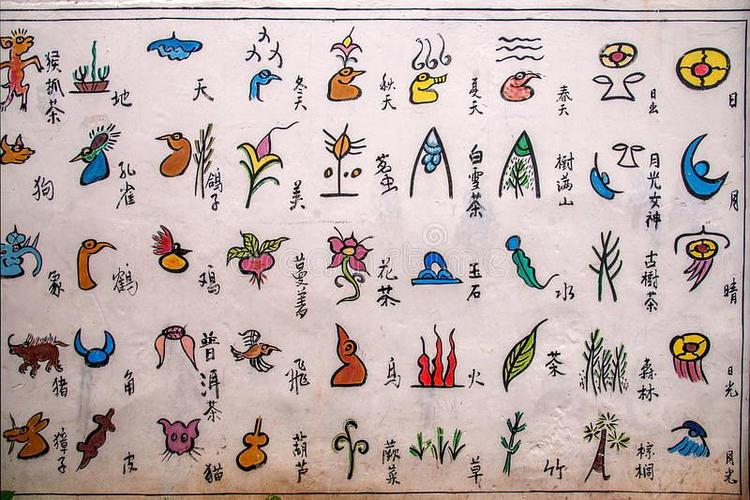 日
月
晴
日光
月光
月光女神
古樹茶
森林
棕榈
春天
樹满山
水
茶
竹
夏天
白雪茶
玉石
火
草
秋天
茗虫
花茶
蕨菜
冬天
美
飞
葫芦
天
鸽子
鸡
普洱茶
猫
地
孔雀
鹤
角
皮
猴抓茶
狗
象
猪
獐子
dreamstime